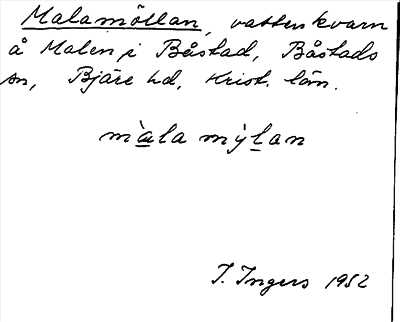 Malamöllan, vattenkvarn
å Malen i Båstad, Båstads
sn, Bjäre hd, Krist. län.
màla mỳlan
I. Ingers 1952